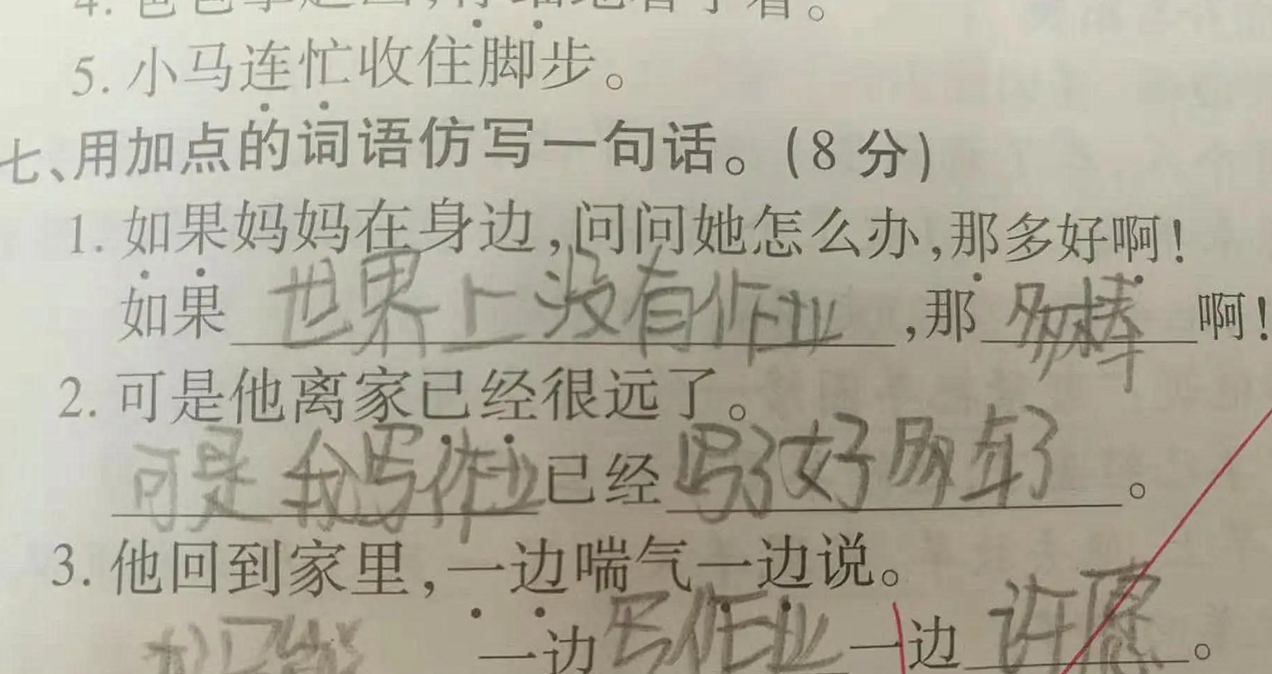 4. 爸爸拿起画,仔细地看了看。
5. 小马连忙收住脚步。
七、用加点的词语仿写一句话。(8 分)
1. 如果妈妈在身边,问问她怎么办,那多好啊!
如果 世界上没有作业 ,那 多棒 啊!
2. 可是他离家已经很远了。
可是我写作业 已经 写了好多年了 。
3. 他回到家里,一边喘气一边说。
一边 写作业 一边 许愿 。